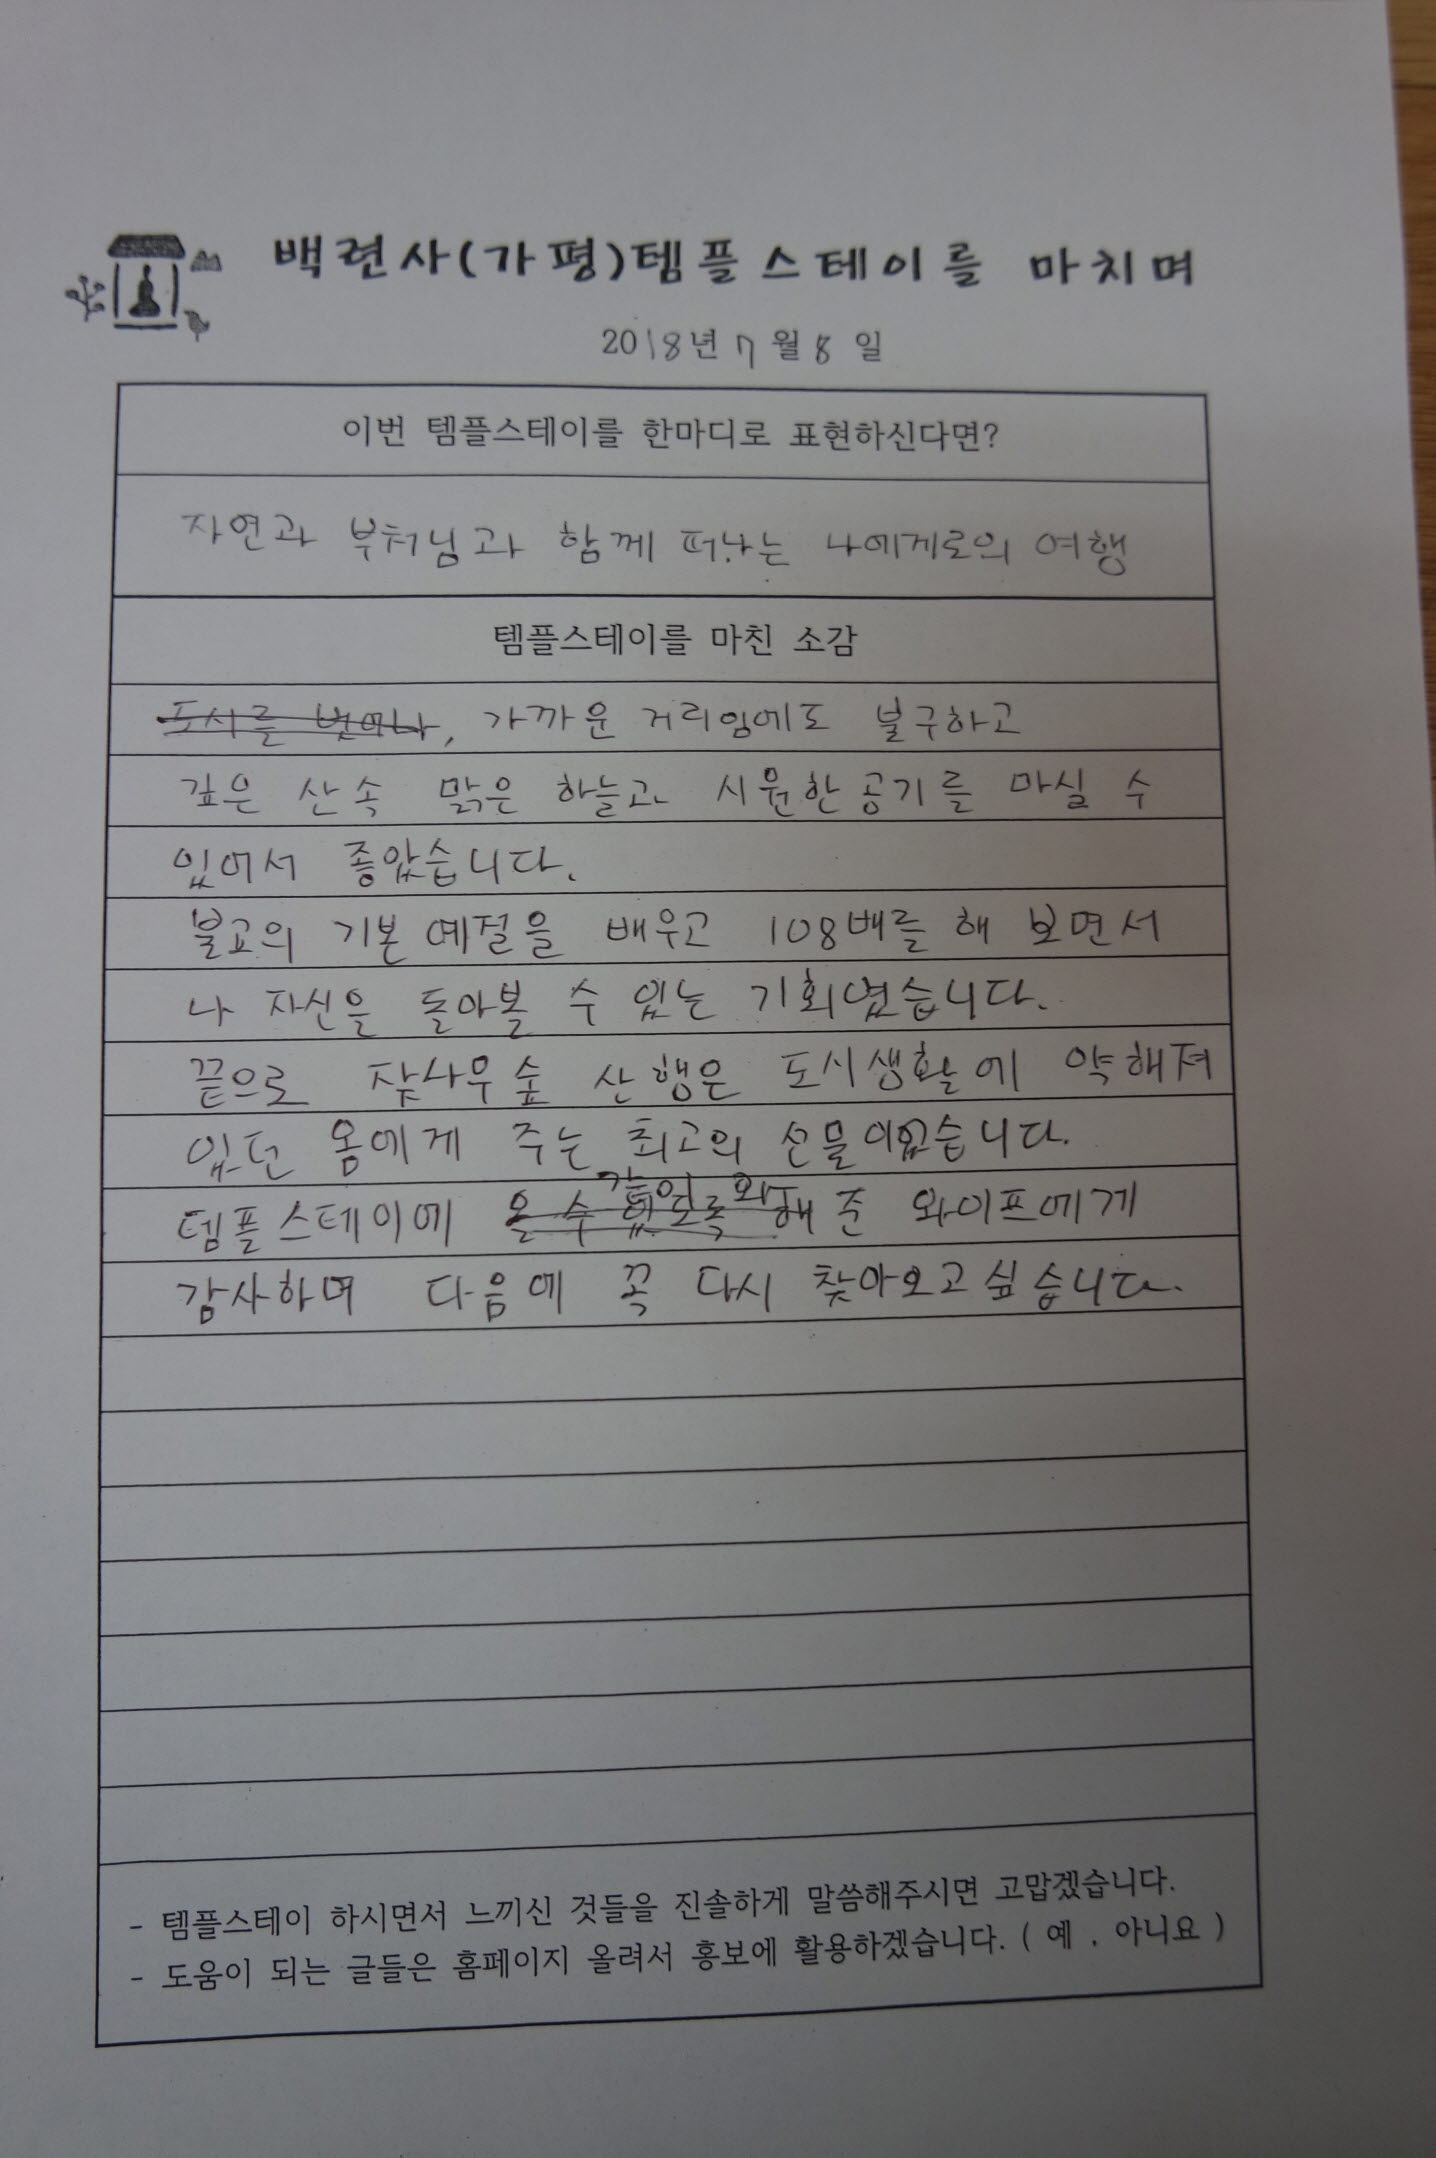 백련사(가평)템플스테이를 마치며
2018년 7월 8일
이번 템플스테이를 한마디로 표현하신다면?
자연과 부처님과 함께 떠나는 나에게로의 여행
템플스테이를 마친 소감
도시를 벗어나, 가까운 거리임에도 불구하고
깊은 산속 맑은 하늘과 시원한 공기를 마실 수
있어서 좋았습니다.
불교의 기본 예절을 배우고 108배를 해 보면서
나 자신을 돌아볼 수 있는 기회였습니다.
끝으로 잣나무숲 산행은 도시생활에 약해져
있던 몸에게 주는 최고의 선물이었습니다.
같이 와
템플스테이에 올 수 있도록 해 준 와이프에게
감사하며 다음에 꼭 다시 찾아오고 싶습니다.
- 템플스테이 하시면서 느끼신 것들을 진솔하게 말씀해주시면 고맙겠습니다.
- 도움이 되는 글들은 홈페이지 올려서 홍보에 활용하겠습니다. ( 예 , 아니요 )